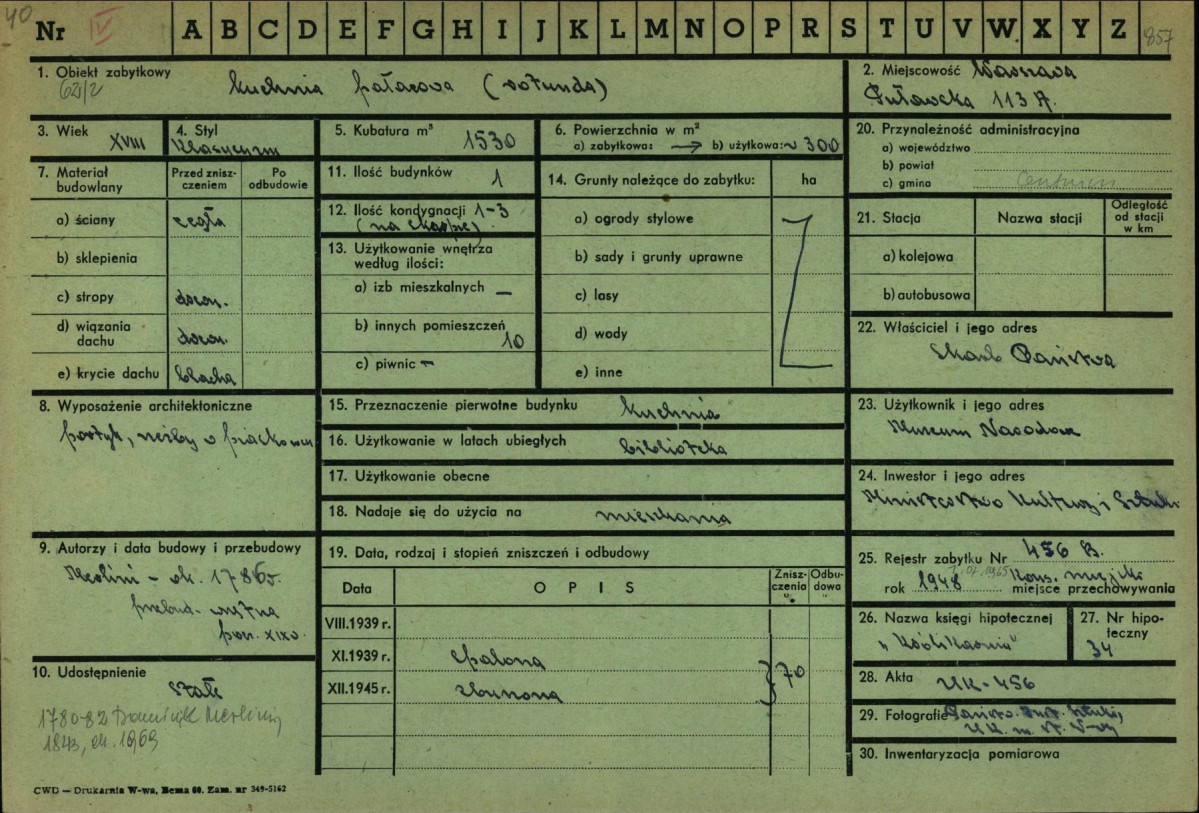 40
Nr IV A B C D E F G H I J K L M N O P R S T U V W X Y Z 857
1. Obiekt zabytkowy kuchnia pałacowa (rotunda)
62/2
2. Miejscowość Warszawa
Puławska 113 A.
3. Wiek XVIII
4. Styl
klasycyzm
5. Kubatura m³ 1530
6. Powierzchnia w m²
a) zabytkowa: b) użytkowa: ~ 300
20. Przynależność administracyjna
a) województwo
b) powiat
c) gmina
7. Materiał budowlany
Przed znisz-
czeniem
Po
odbudowie
a) ściany cegła
b) sklepienia
c) stropy drewn.
d) wiązania
dachu drewn.
e) krycie dachu blacha
11. Ilość budynków 1
12. Ilość kondygnacji 1-3
13. Użytkowanie wnętrza
według ilości:
a) izb mieszkalnych —
b) innych pomieszczeń
10
c) piwnic —
14. Grunty należące do zabytku: ha
a) ogrody stylowe
b) sady i grunty uprawne
c) lasy
d) wody
e) inne
21. Stacja Nazwa stacji Odległość
od stacji
w km
a) kolejowa
b) autobusowa
22. Właściciel i jego adres
Skarb Państwa
8. Wyposażenie architektoniczne
portyk, rzeźby
15. Przeznaczenie pierwotne budynku kuchnia
16. Użytkowanie w latach ubiegłych biblioteka
17. Użytkowanie obecne
18. Nadaje się do użycia na mieszkania
23. Użytkownik i jego adres
Muzeum Narodowe
24. Inwestor i jego adres
Ministerstwo Kultury i Sztuki
9. Autorzy i data budowy i przebudowy
Merlini - ok. 1786r.
przebud. wnętrza
poł. XIXw.
10. Udostępnienie
stałe
1780-82 Dominik Merlini,
1843, ok. 1969
19. Data, rodzaj i stopień zniszczeń i odbudowy
Data OPIS Znisz-
czenia
% Odbu-
dowa
"
VIII.1939 r.
XI.1939 r. spalona
XII.1945 r. zburzona } 70
25. Rejestr zabytku Nr 456 B.
1.07.1965
rok 1948 Kons. miejski
miejsce przechowywania
26. Nazwa księgi hipotecznej
„Królikarnia"
27. Nr hipo-
teczny
34
28. Akta UK-456
29. Fotografie Państw. Inst. Sztuki,
UK. m. st. W-wy
30. Inwentaryzacja pomiarowa
CWD — Drukarnia W-wa, Bema 60. Zam. nr 349-5162